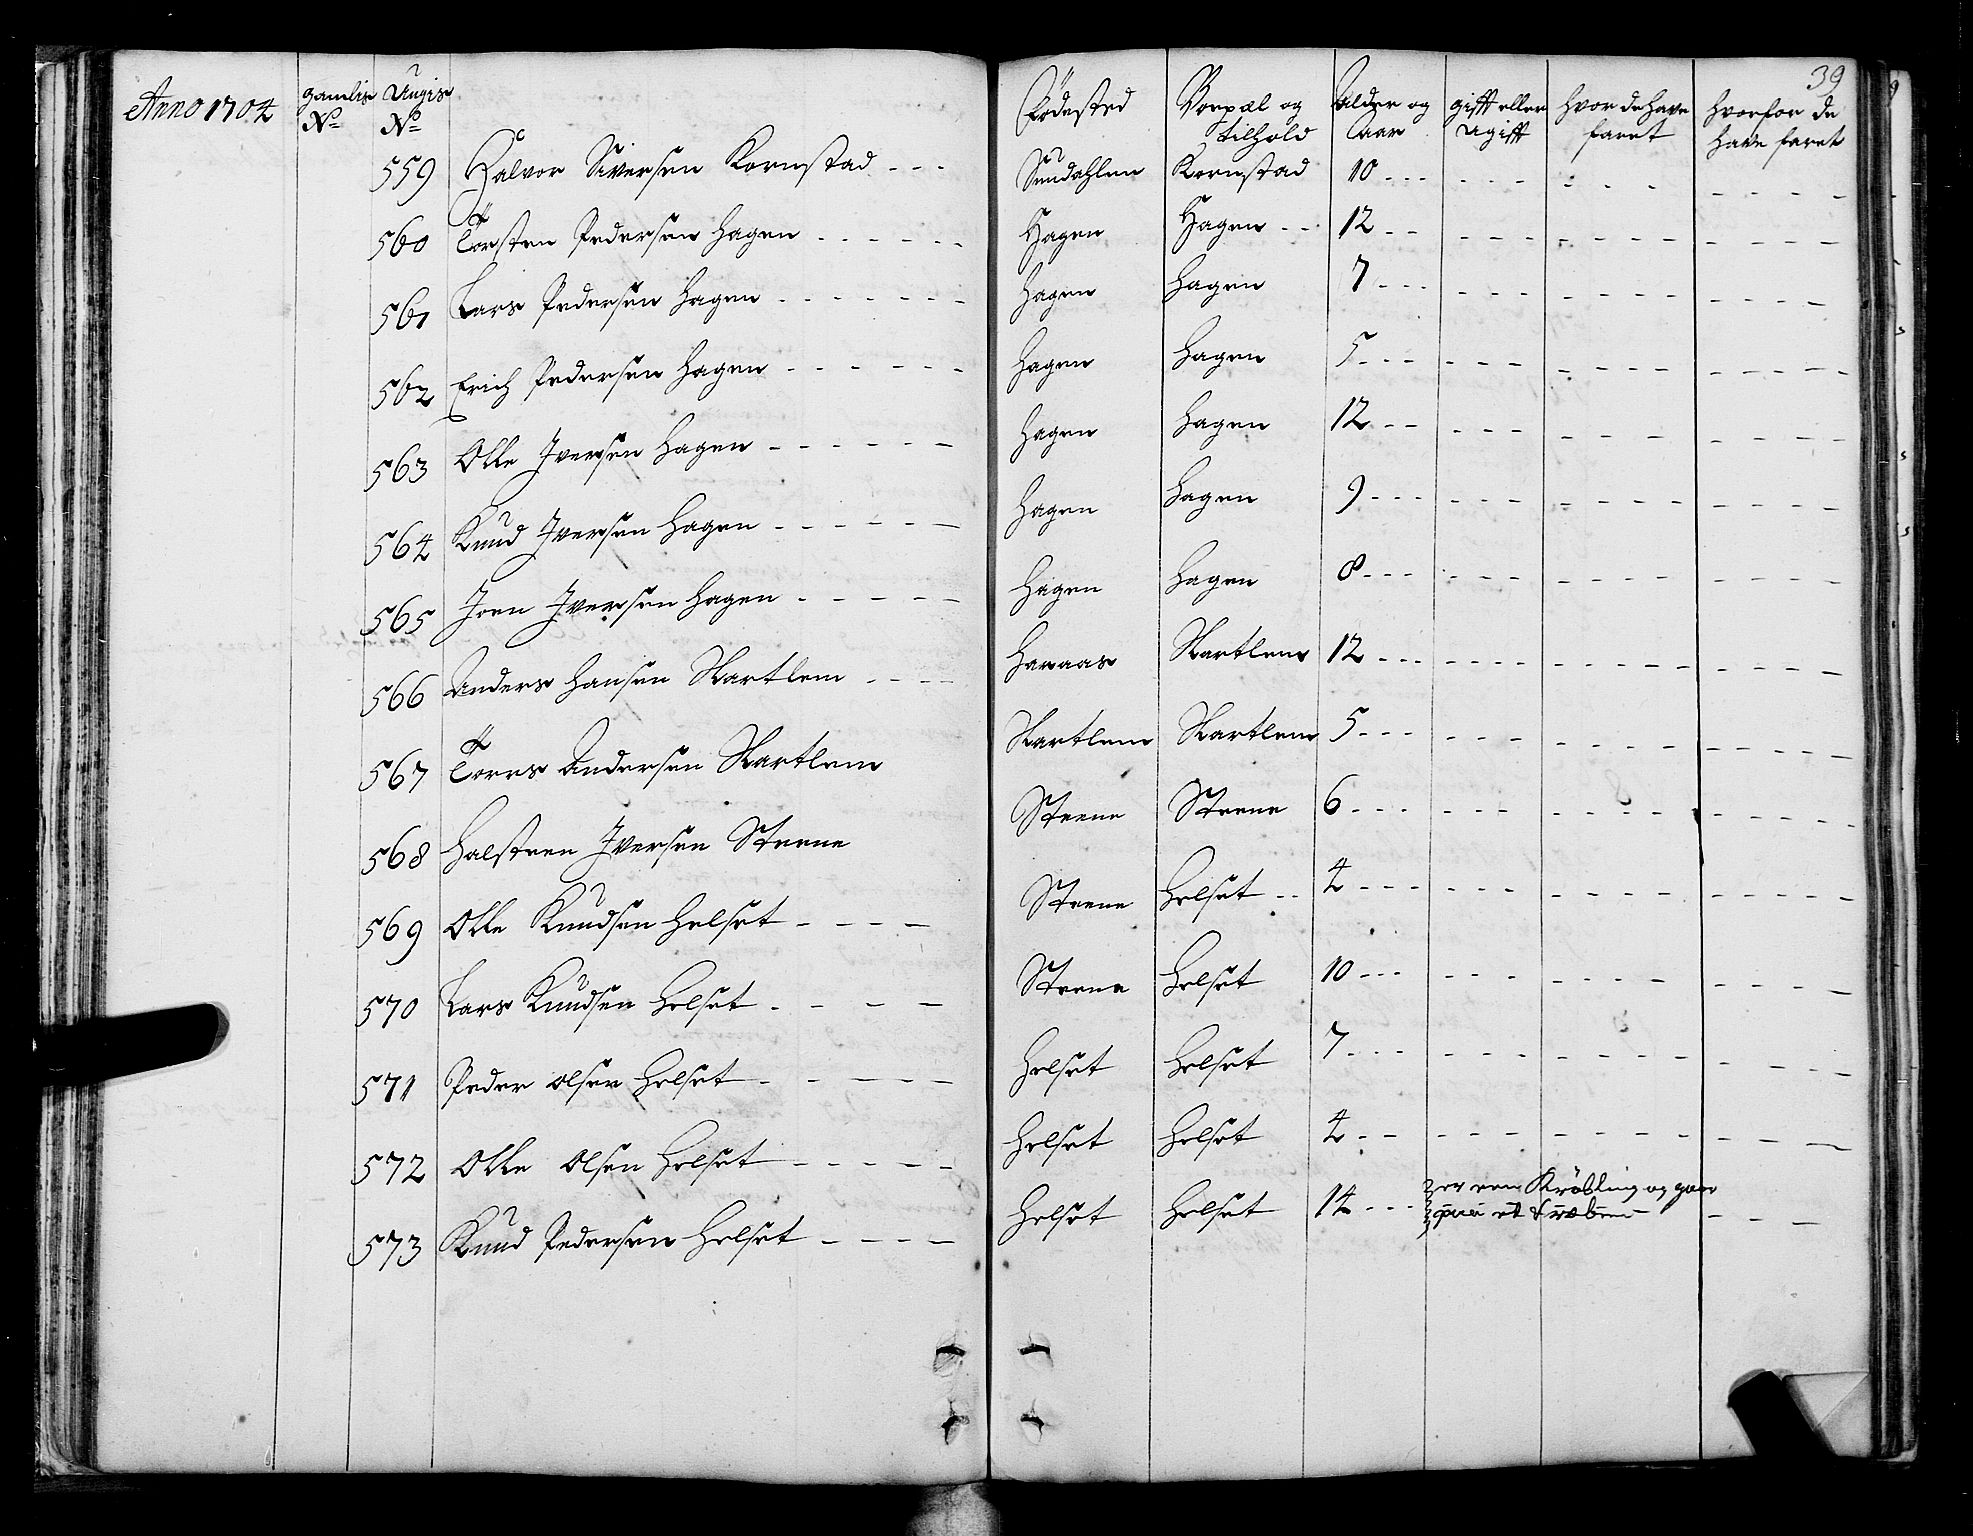 39
Anno 1704 gamlis No Ungis No Födested Borpæl og tilhold alder og Aar gifft eller Ugifft hvor de have faret hvorfor de have faret
559 Halvor Siversen Kornstad - - - Sundahlen Kornstad 10 - - -
560 Torsten Pedersen Hagen - - - Hagen Hagen - - 12 - -
561 Lars Pedersen Hagen - - - Hagen Hagen 7 - - -
562 Erich Pedersen Hagen - - - Hagen Hagen 5 - - -
563 Olle Iversen Hagen - - - Hagen Hagen 12 - -
564 Knud Iversen Hagen - - - Hagen Hagen 9 - - -
565 Joen Iversen Hagen - - - Hagen Hagen 8 - - -
566 Anders Hansen Skartlem - - - Haraas Skartlem 12 - - -
567 Torres Andersen Skartlem Skartlem Skartlem 5 - - -
568 Halsteen Iversen Steene Steene Steene 6 - - -
569 Olle Knudsen Helset - - - Steene Helset - - 4 - - -
570 Lars Knudsen Helset - - - Steene Helset 10 - - -
571 Peder olsen Helset - - - Helset Helset 7 - - -
572 Olle Olsen Helset - - - Helset Helset 4 - -
573 Knud Pedersen Helset - - - Helset Helset 14 - - - er een Kröbling og gaar
paa et træbeen - - -